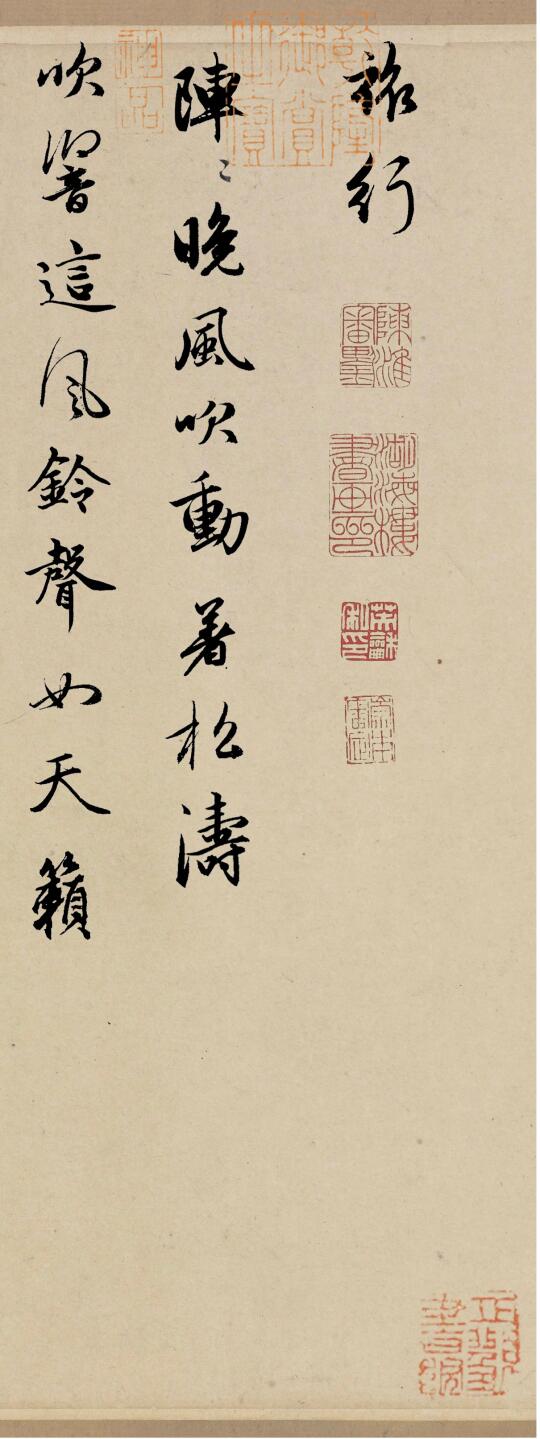 旅行
陣〻晚風吹動著松濤
吹響這风鈴聲如天籟